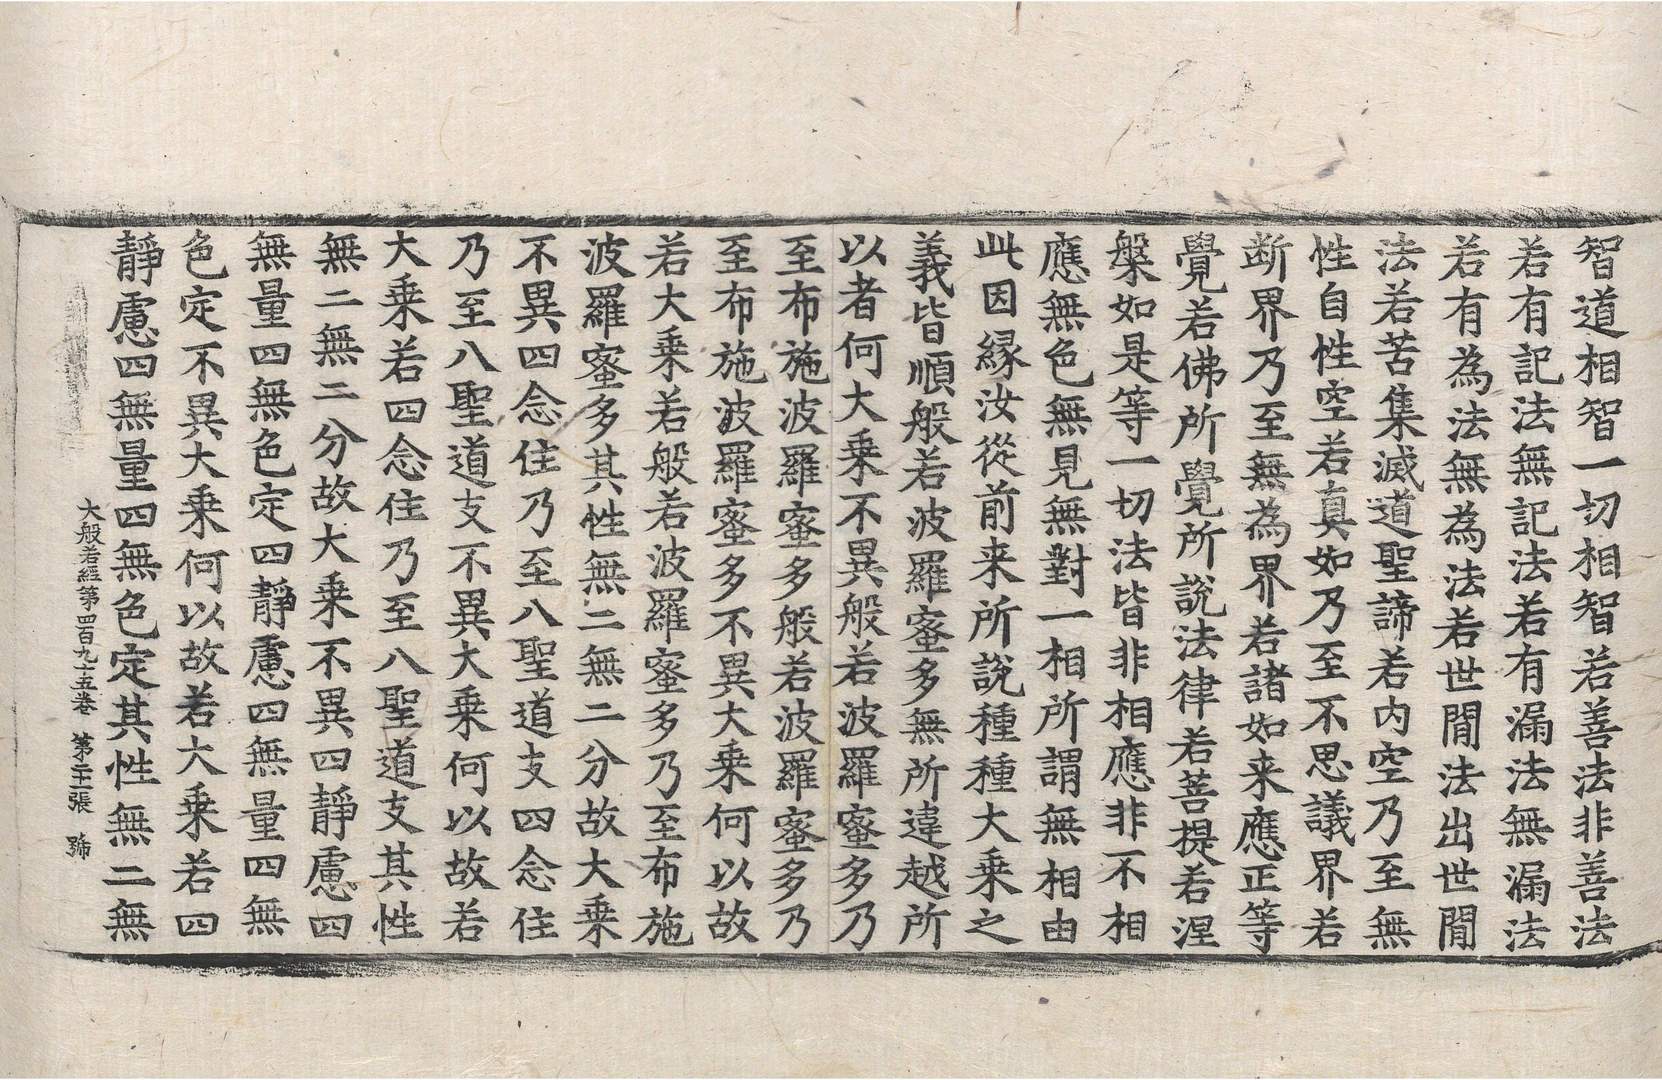 智道相智一切相智若善法非善法
若有記法無記法若有漏法無漏法
若有為法無為法若世閒法出世閒
法若苦集滅道聖諦若內空乃至無
性自性空若真如乃至不思議界若
断界乃至無為界若諸如来應正等
覺若佛所覺所說法律若菩提若涅
槃如是等一切法皆非相應非不相
應無色無見無對一相所謂無相由
此因縁汝從前来所說種種大乗之
義皆順般若波羅蜜多無所違越所
以者何大乗不異般若波羅蜜多乃
至布施波羅蜜多般若波羅蜜多乃
至布施波羅蜜多不異大乗何以故
若大乗若般若波羅蜜多乃至布施
波羅蜜多其性無二無二分故大乗
不異四念住乃至八聖道支四念住
乃至八聖道支不異大乗何以故若
大乗若四念住乃至八聖道支其性
無二無二分故大乗不異四靜慮四
無量四無色定四靜慮四無量四無
色定不異大乗何以故若大乗若四
靜慮四無量四無色定其性無二無
大般若經第四百九十五卷 第二十二張 號